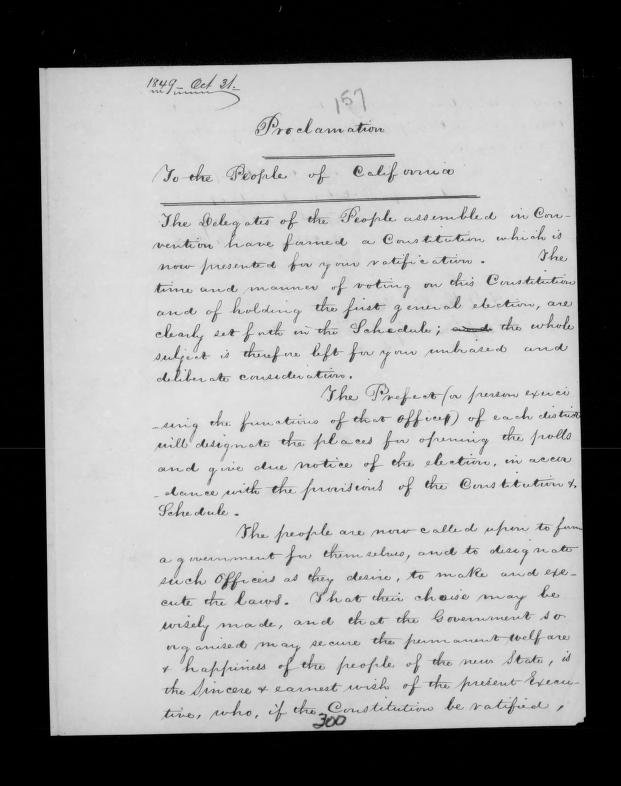 1849 - Oct 31.
157
Proclamation
To the People of California
The Delegates of the People assembled in Con-
vention have formed a Constitution which is
now presented for your ratification. The
time and manner of voting on this Constitution
and of holding the first general election, are
clearly set forth in the Schedule; and the whole
subject is therefore left for your unbiased and
deliberate consideration.
The Prefect (or person exerci
-sing the functions of that office) of each district
will designate the places for opening the polls
and give due notice of the election, in accor
-dance with the provisions of the Constitution &
Schedule.
The people are now called upon to form
a government for themselves, and to designate
such Officers as they desire, to make and exe-
cute the laws. That their choise may be
wisely made, and that the Government so
organised may secure the permanent welfare
& happiness of the people of the new State, is
the Sincere & earnest wish of the present Execu-
tive, who, if the Constitution be ratified,
300